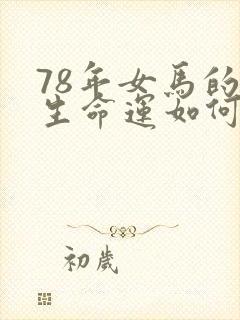 78年女馬的
生命運如何
初歲